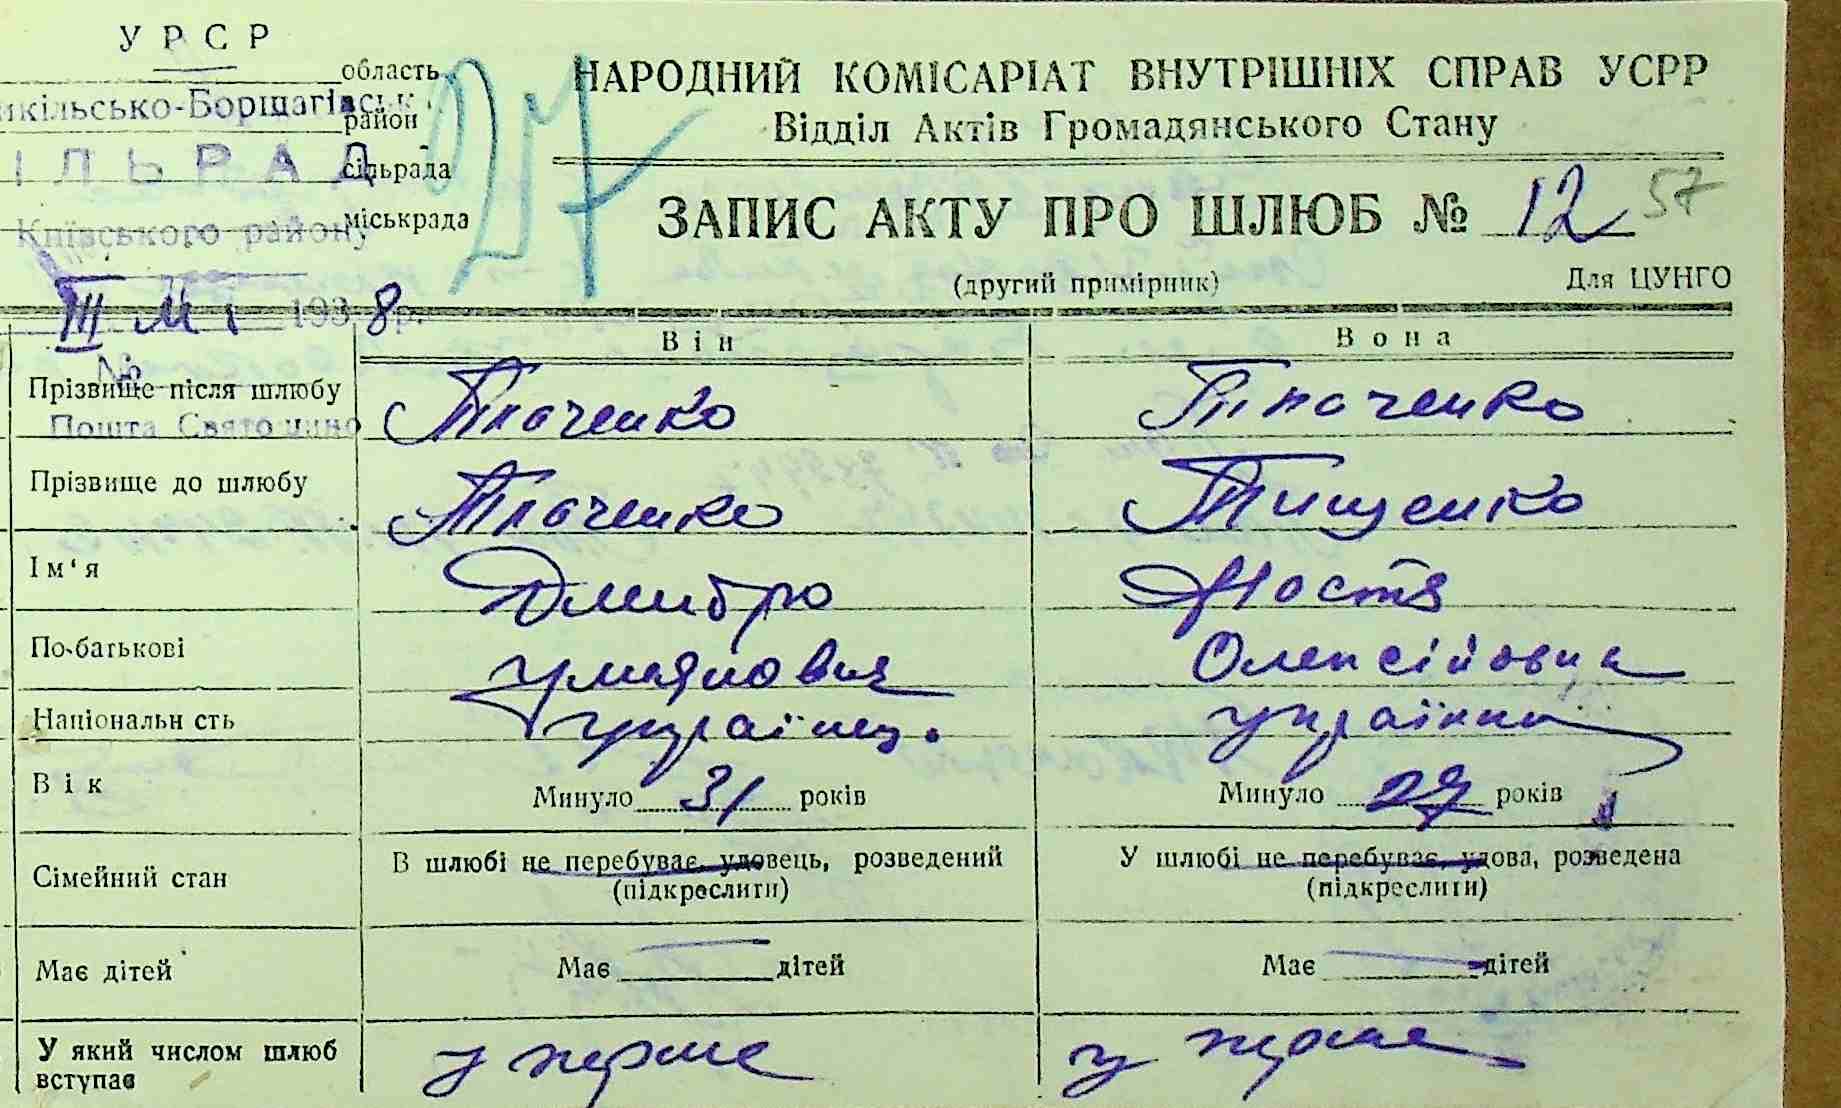 УРСР
область
Микільсько-Борщагівськ
район
ІЛЬРАД
сільрада
Київського району
міськрада
27
НАРОДНИЙ КОМІСАРІАТ ВНУТРІШНІХ СПРАВ УСРР
Відділ Актів Громадянського Стану
ЗАПИС АКТУ ПРО ШЛЮБ № 12 57
(другий примірник) Для ЦУНГО
III 1938р.
№
Пошта Святошино
Він Вона
Прізвище після шлюбу Ткаченко Ткаченко
Прізвище до шлюбу Ткаченко Тищенко
Ім'я Дмитро Настя
По-батькові Олексійовна
Національн сть українец. українка
Вік Минуло 31 років Минуло 29 років
Сімейний стан В шлюбі не перебуває, удовець, розведений У шлюбі не перебуває, удова, розведена
(підкреслити) (підкреслити)
Має дітей Має дітей Має дітей
У який числом шлюб вступає у перше у перше